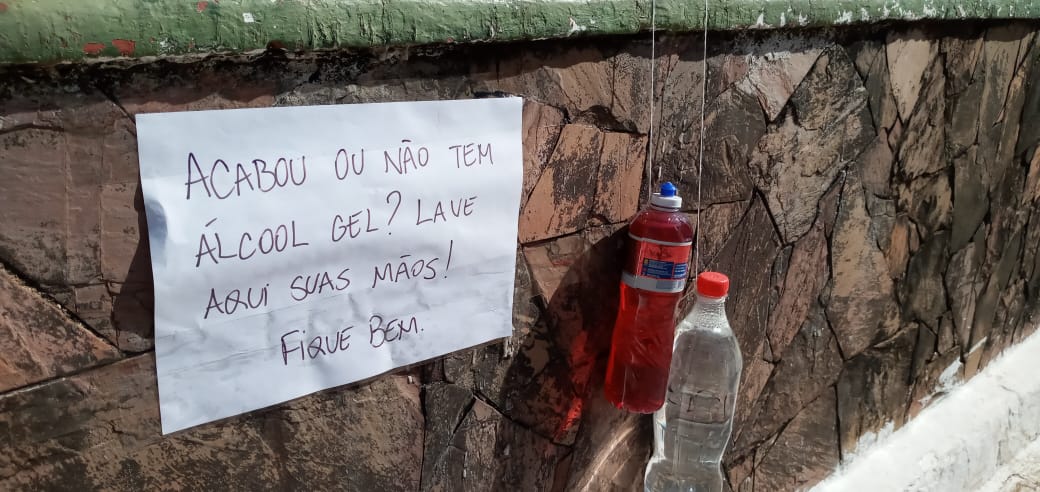 ACABOU OU NÃO TEM
ÁLCOOL GEL? LAVE
AQUI SUAS MÃOS!
FIQUE BEM.